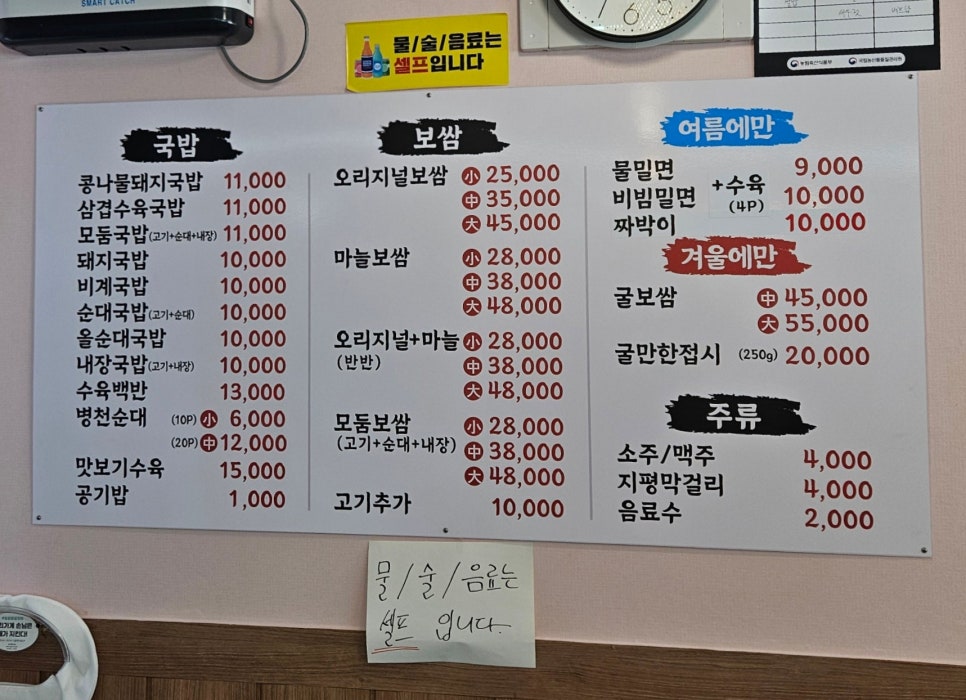 SMART CATCH
물/술/음료는
셀프입니다
6 5
농림축산식품부 국립농산물품질관리원
국밥
콩나물돼지국밥 11,000
삼겹수육국밥 11,000
모둠국밥(고기+순대+내장) 11,000
돼지국밥 10,000
비계국밥 10,000
순대국밥(고기+순대) 10,000
올순대국밥 10,000
내장국밥(고기+내장) 10,000
수육백반 13,000
병천순대 (10P) 小 6,000
(20P) 中 12,000
맛보기수육 15,000
공기밥 1,000
보쌈
오리지널보쌈 小 25,000
中 35,000
大 45,000
마늘보쌈 小 28,000
中 38,000
大 48,000
오리지널+마늘 小 28,000
(반반) 中 38,000
大 48,000
모둠보쌈 小 28,000
(고기+순대+내장) 中 38,000
大 48,000
고기추가 10,000
여름에만
물밀면 9,000
비빔밀면 +수육 (4P) 10,000
짜박이 10,000
겨울에만
굴보쌈 中 45,000
大 55,000
굴만한접시 (250g) 20,000
주류
소주/맥주 4,000
지평막걸리 4,000
음료수 2,000
물/술/음료는
셀프 입니다.